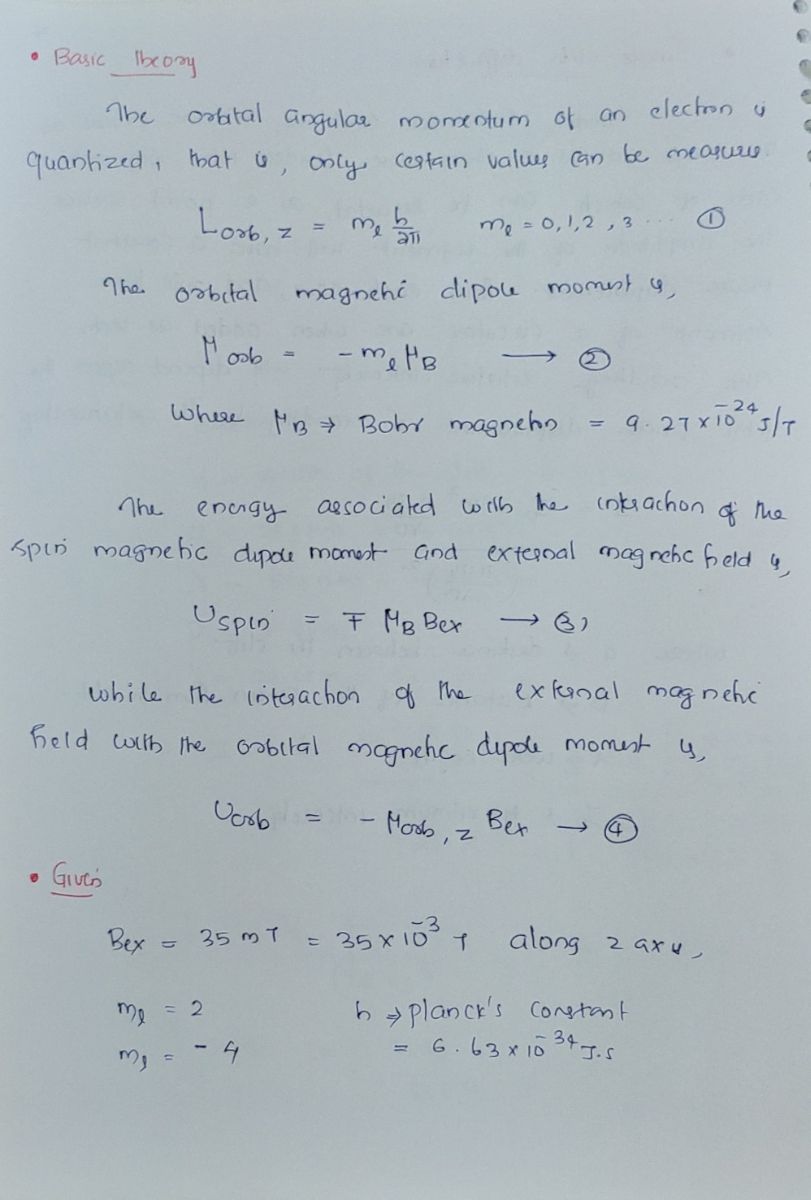 • Basic Theory
The orbital angular momentum of an electron is
quantized, that is, only certain values can be measures.
Lorb, z = mℓ h/2π mℓ = 0, 1, 2, 3 ... ①
The orbital magnetic dipole moment is,
μorb = - mℓ μB → ②
Where μB ⇒ Bohr magneton = 9.27 x 10⁻²⁴ J/T
The energy associated with the interaction of the
spin magnetic dipole moment and external magnetic field is,
Uspin = ∓ μB Bex → ③
while the interaction of the external magnetic
field with the orbital magnetic dipole moment is,
Uorb = - μorb, z Bex → ④
• Given
Bex = 35 mT = 35 x 10⁻³ T along z axis,
mℓ = 2 h ⇒ planck's constant
mℓ = - 4 = 6.63 x 10⁻³⁴ J.s